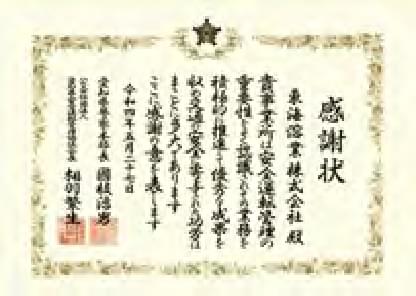 感謝状
東海溶業株式会社 殿
貴事業所は安全運転管理の
重要性をよく認識されその業務を
積極的に推進し優秀な成果を
収め交通の安全に寄与された功労は
まことに多大であります
ここに感謝の意を表します
令和四年五月二十七日
愛知県警察本部長 國枝治男